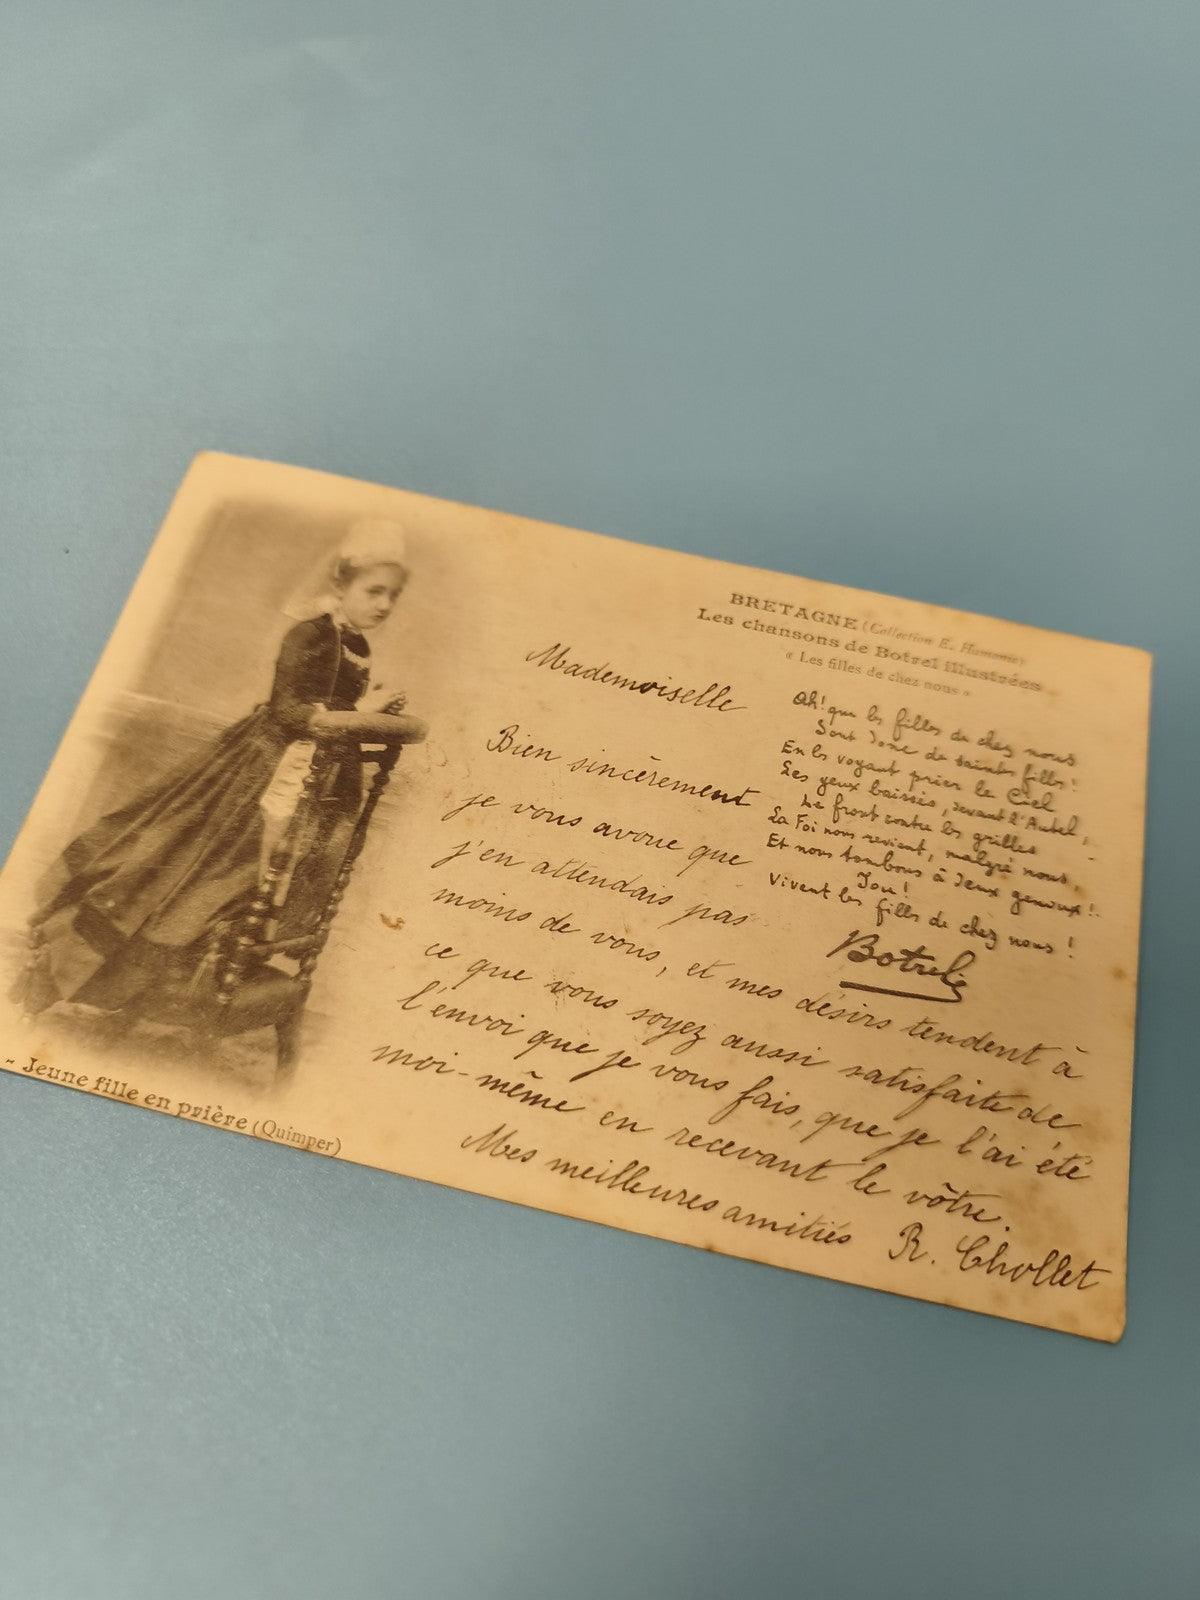 BRETAGNE (Collection E. Hamonic)
Les chansons de Botrel illustrées
« Les filles de chez nous »
Ah! que les filles de chez nous
Sont donc de saintes filles!
En les voyant prier le Ciel
Les yeux baissés, devant l'Autel,
Le front contre les grilles
La Foi nous revient, malgré nous,
Et nous tombons à deux genoux!
Iou!
Vivent les filles de chez nous!
Botrel
Mademoiselle
Bien sincèrement
je vous avoue que
j'en attendais pas
moins de vous, et mes désirs tendent à
ce que vous soyez aussi satisfaite de
l'envoi que je vous fais, que je l'ai été
moi-même en recevant le vôtre.
Mes meilleures amitiés R. Chollet
- Jeune fille en prière (Quimper)